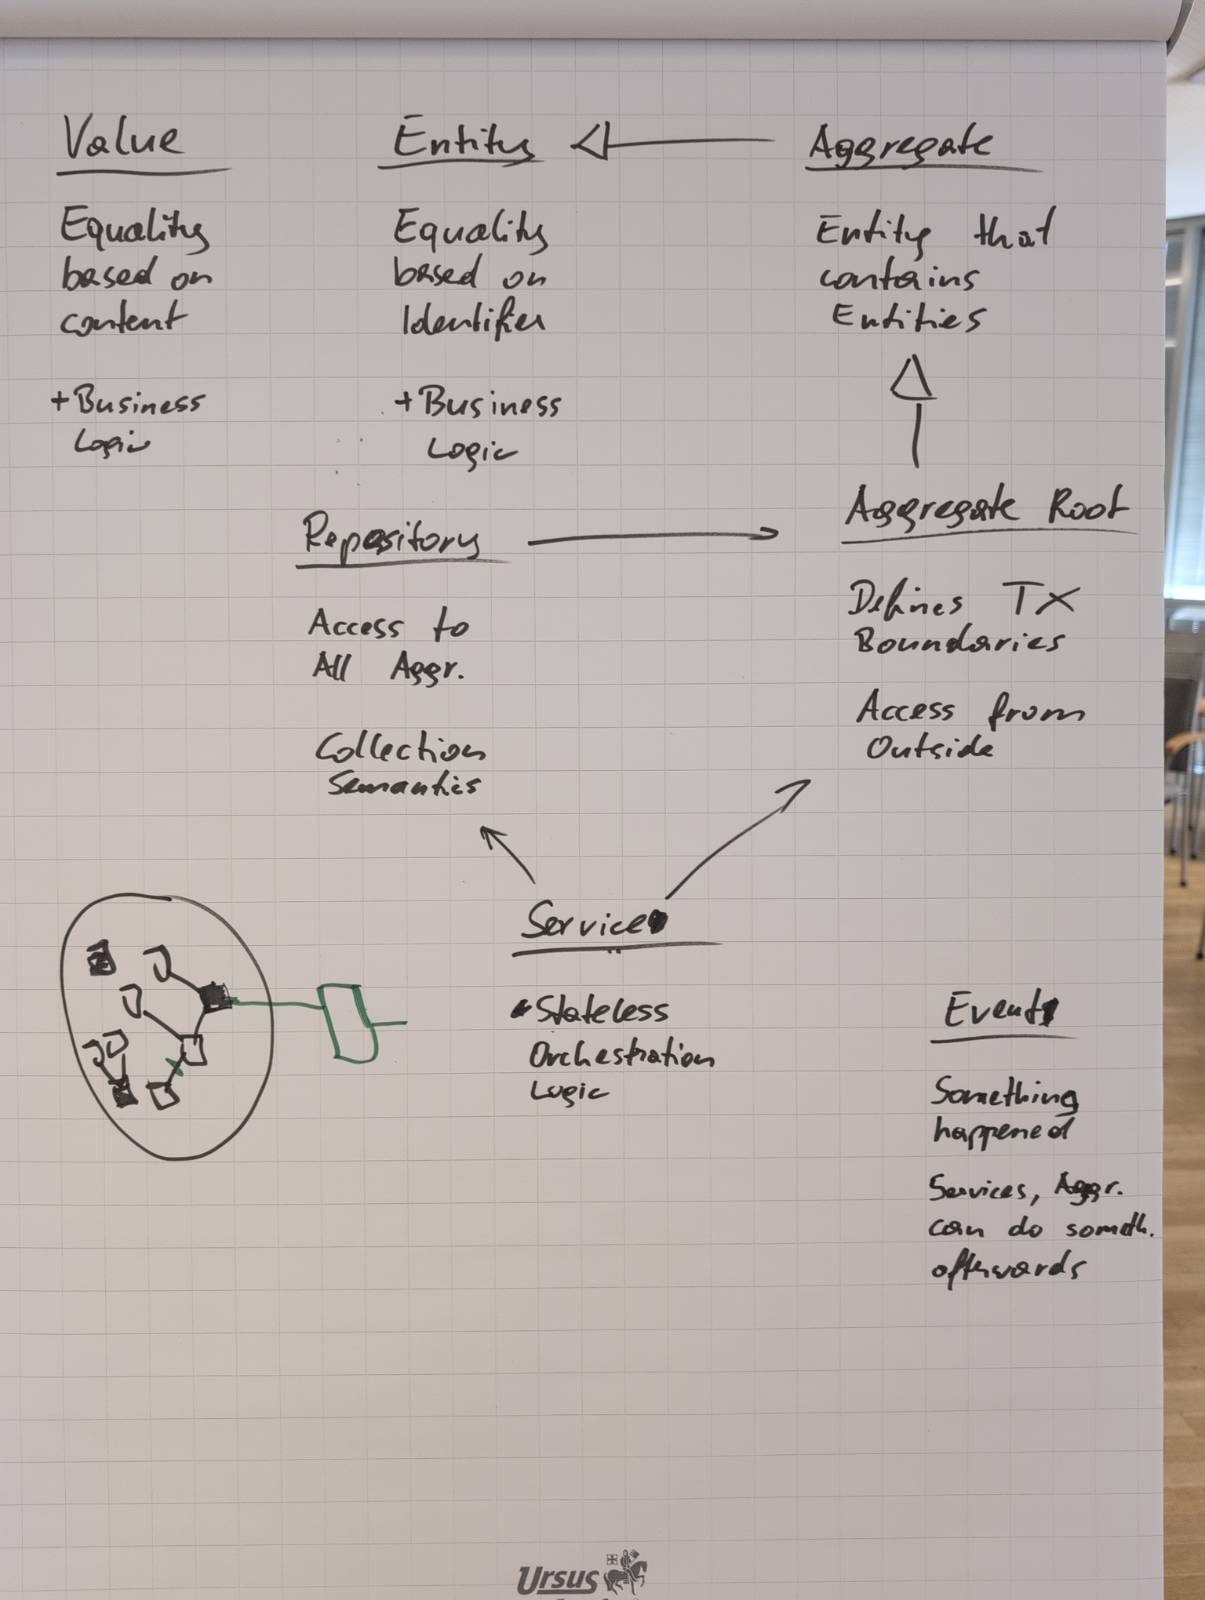 Value
Equality
based on
content
+ Business
Logic
Entity
Equality
based on
Identifier
+ Business
Logic
Aggregate
Entity that
contains
Entities
Repository
Access to
All Aggr.
Collection
Semantics
Aggregate Root
Defines TX
Boundaries
Access from
Outside
Service
Stateless
Orchestration
Logic
Event
Something
happened
Services, Aggr.
can do someth.
afterwards
Ursus